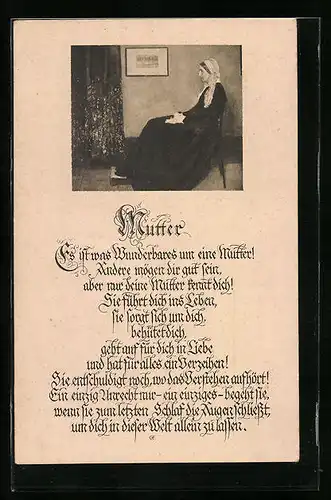 Mutter
Es ist was Wunderbares um eine Mutter!
Andere mögen dir gut sein,
aber nur deine Mutter kennt dich!
Sie führt dich ins Leben,
sie sorgt sich um dich,
behütet dich,
geht auf für dich in Liebe
und hat für alles ein Verzeihen!
Sie entschuldigt noch, wo das Verstehen aufhört!
Ein einzig Unrecht nur – ein einziges – begeht sie,
wenn sie zum letzten Schlaf die Augen schließt,
um dich in dieser Welt allein zu lassen.